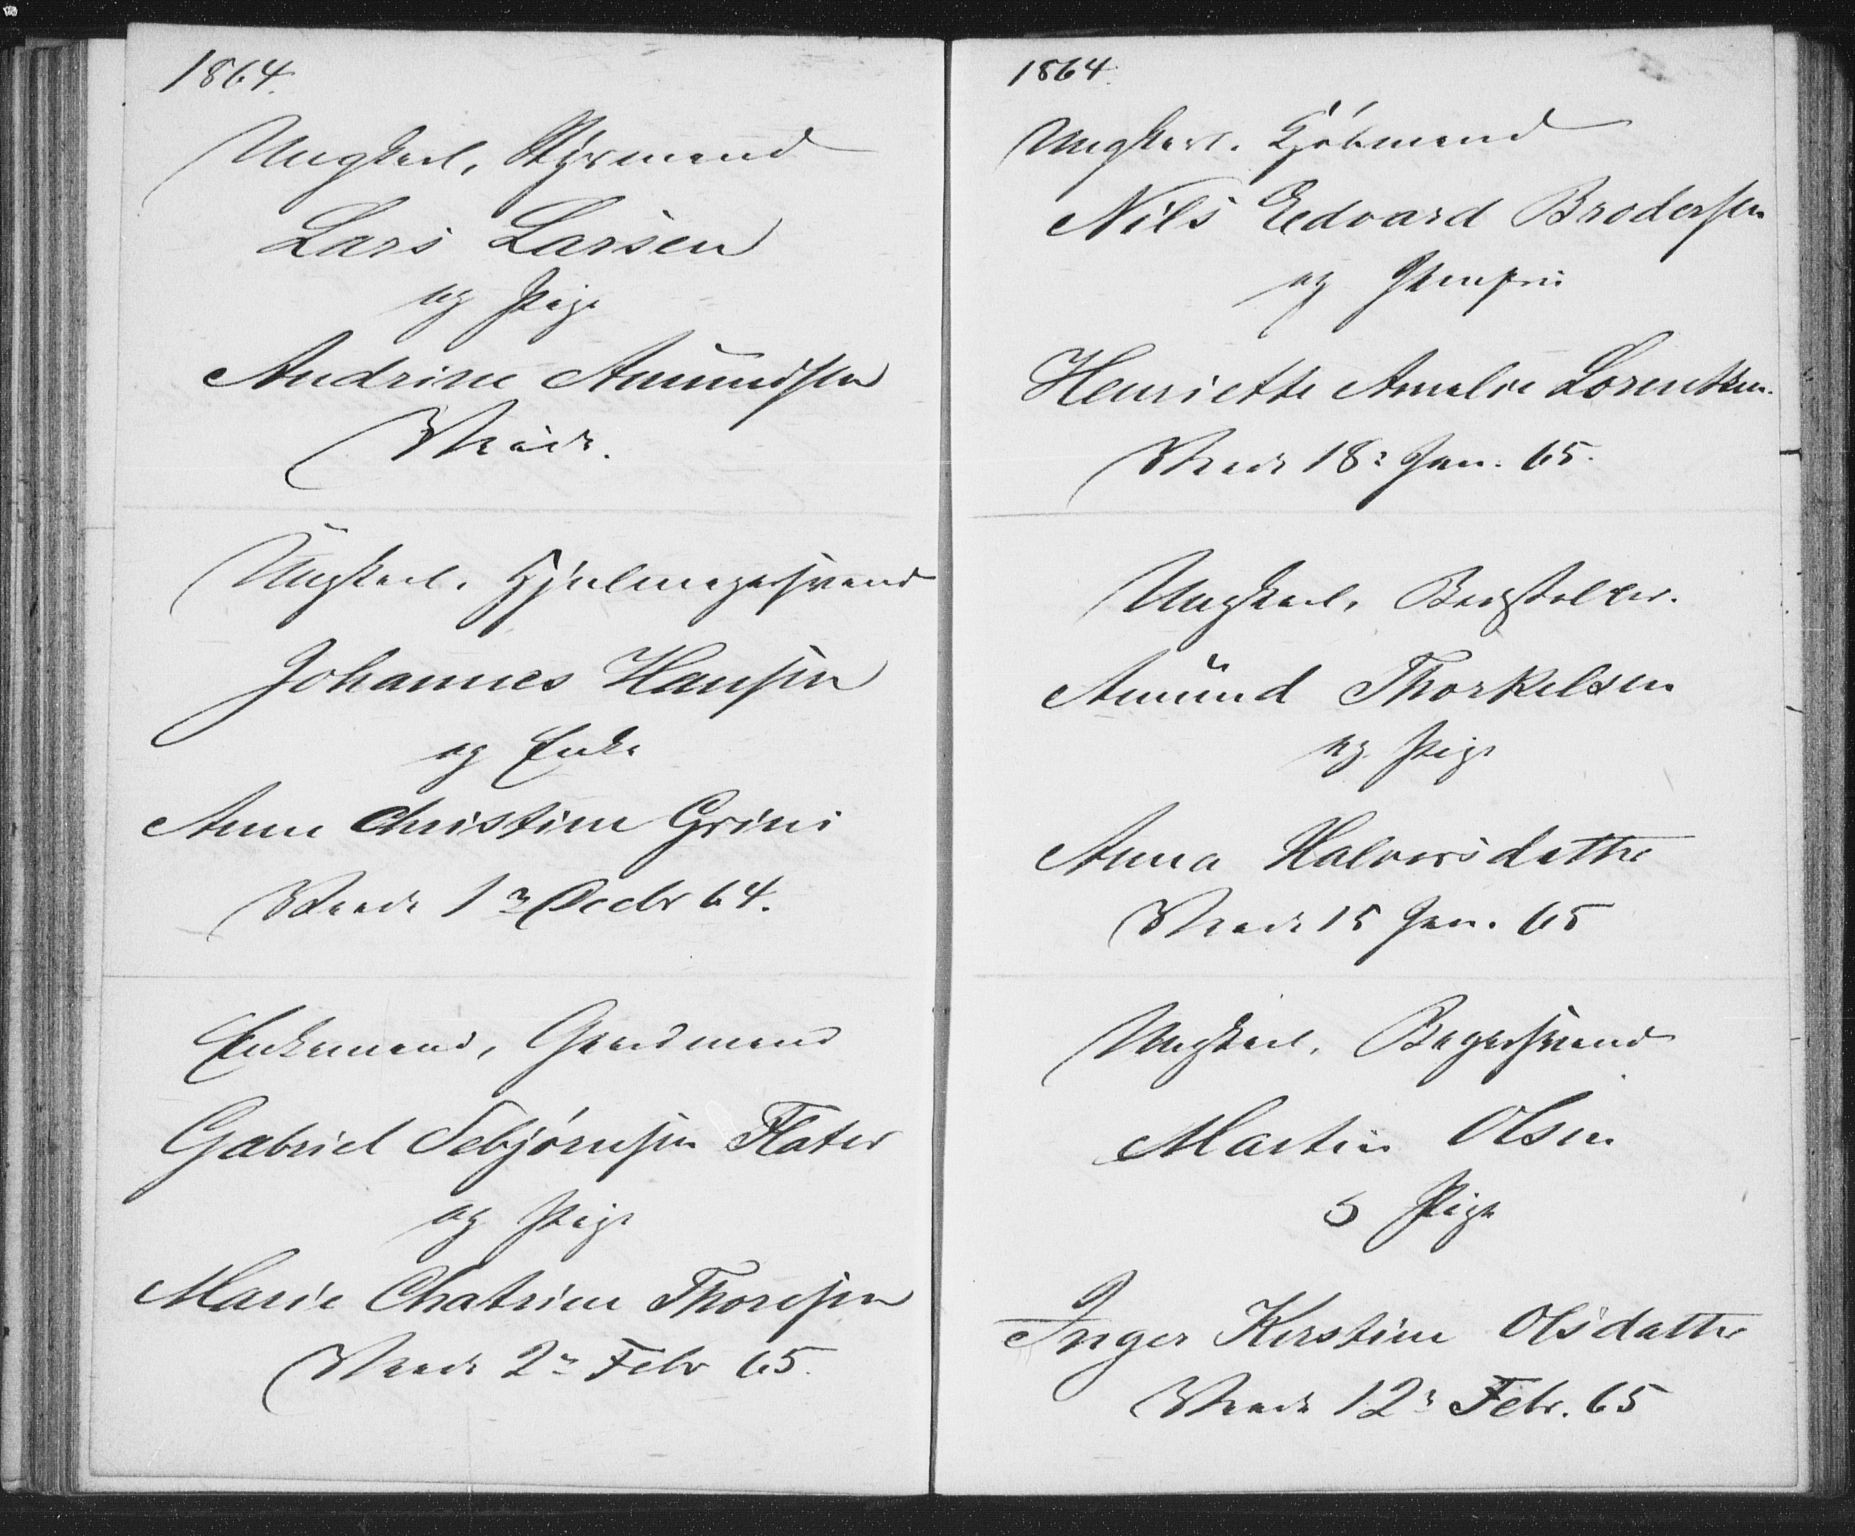 1864.
Ungkarl, Styrmand
Lars Larsen
og Pige
Andrine Amundsen
Viede.
Ungkarl, Hjulmagersvend
Johannes Hansen
og Enke
Anne Christine Grini
Viede 1 Decbr 64.
Enkemand, Gaardmand
Gabriel Sebjørnsen Flater
og Pige
Marie Chatrine Thoresen
Viede 2 Febr 65.
1864.
Ungkarl. Kjøbmand
Nils Edvard Brodersen
og Jomfru
Henriette Amalie Lorentzen.
Viede 18 Jan. 65.
Ungkarl,
Amund Thorkelsen
og Pige
Anna Halvorsdatter
Viede 15 Jan. 65
Ungkarl, Bagersvend
Martin Olsen
& Pige
Inger Kirstine Olsdatter
Viede 12 Febr. 65